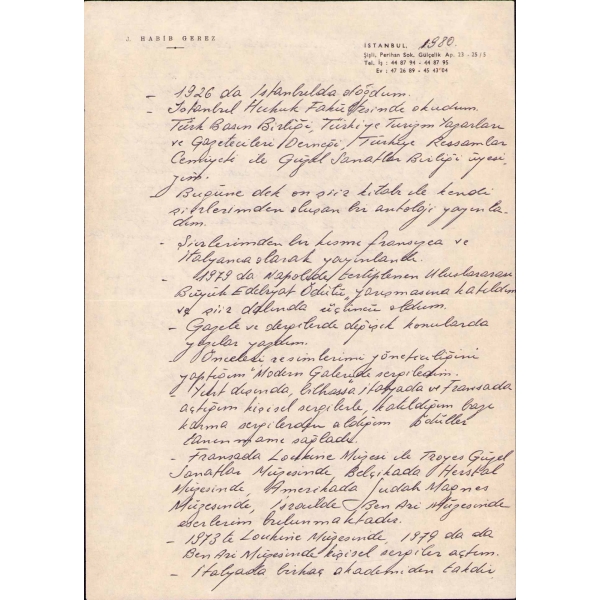 J. HABİB GEREZ
İSTANBUL, 1980.
Şişli, Perihan Sok. Gülçelik Ap. 23 - 25/5
Tel. İş : 44 87 94 - 44 87 95
Ev : 47 26 89 - 45 43 04
- 1926 da İstanbulda doğdum.
- İstanbul Hukuk Fakültesinde okudum.
Türk Basın Birliği, Türkiye Turizm Yazarları
ve Gazetecileri Derneği, Türkiye Ressamlar
Cemiyeti ile Güzel Sanatlar Birliği üyesi-
yim.
- Bugüne dek on şiir kitabı ile kendi
şiirlerimden oluşan bir antoloji yayınla-
dım.
- Şiirlerimden bir kısmı fransızca ve
İtalyanca olarak yayınlandı.
- 1979 da Napolide tertiplenen Uluslararası
Büyük Edebiyat Ödülü yarışmasına katıldım
ve şiir dalında üçüncü oldum.
- Gazete ve dergilerde değişik konularda
yazılar yazdım.
- Önceleri resimlerimi yöneticiliğini
yaptığım "Modern Galeri"de sergiledim.
- Yurt dışında, bilhassa italyada ve Fransada
açtığım kişisel sergilerle, katıldığım bazı
karma sergilerden aldığım ödüller
tanınmamı sağladı.
- Fransada Loukine Müzesi ile Troyes Güzel
Sanatlar Müzesinde, Belçikada Herstal
Müzesinde, Amerikada Judah Magnes
Müzesinde, İsrailde Ben Ari Müzesinde
eserlerim bulunmaktadır.
- 1973 te Loukine Müzesinde, 1979 da da
Ben Ari Müzesinde kişisel sergiler açtım.
- İtalyada birkaç akademiden takdir